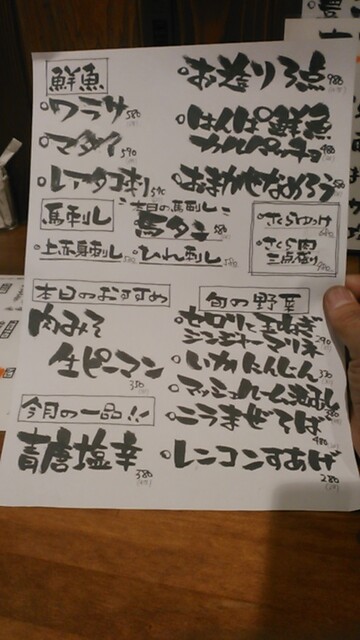 鮮魚
ワラサ 580
マダイ 590
レアタコ刺 590
お造り3点 980
はんぱ鮮魚
カルパッチョ 480
おまかせなめろう 580
馬刺し
本日の馬刺し
馬タン 580
上赤身刺し
ひれ刺し
さくらゆっけ
さくら肉
三点盛り
本日のおすすめ
肉みそ
生ピーマン
350
今月の一品!!
青唐塩辛 380
旬の野菜
セロリと玉ねぎ
ジンジャーマリネ 290
いかにんじん 330
マッシュルーム
ニラまぜそば
480
レンコンすあげ
280